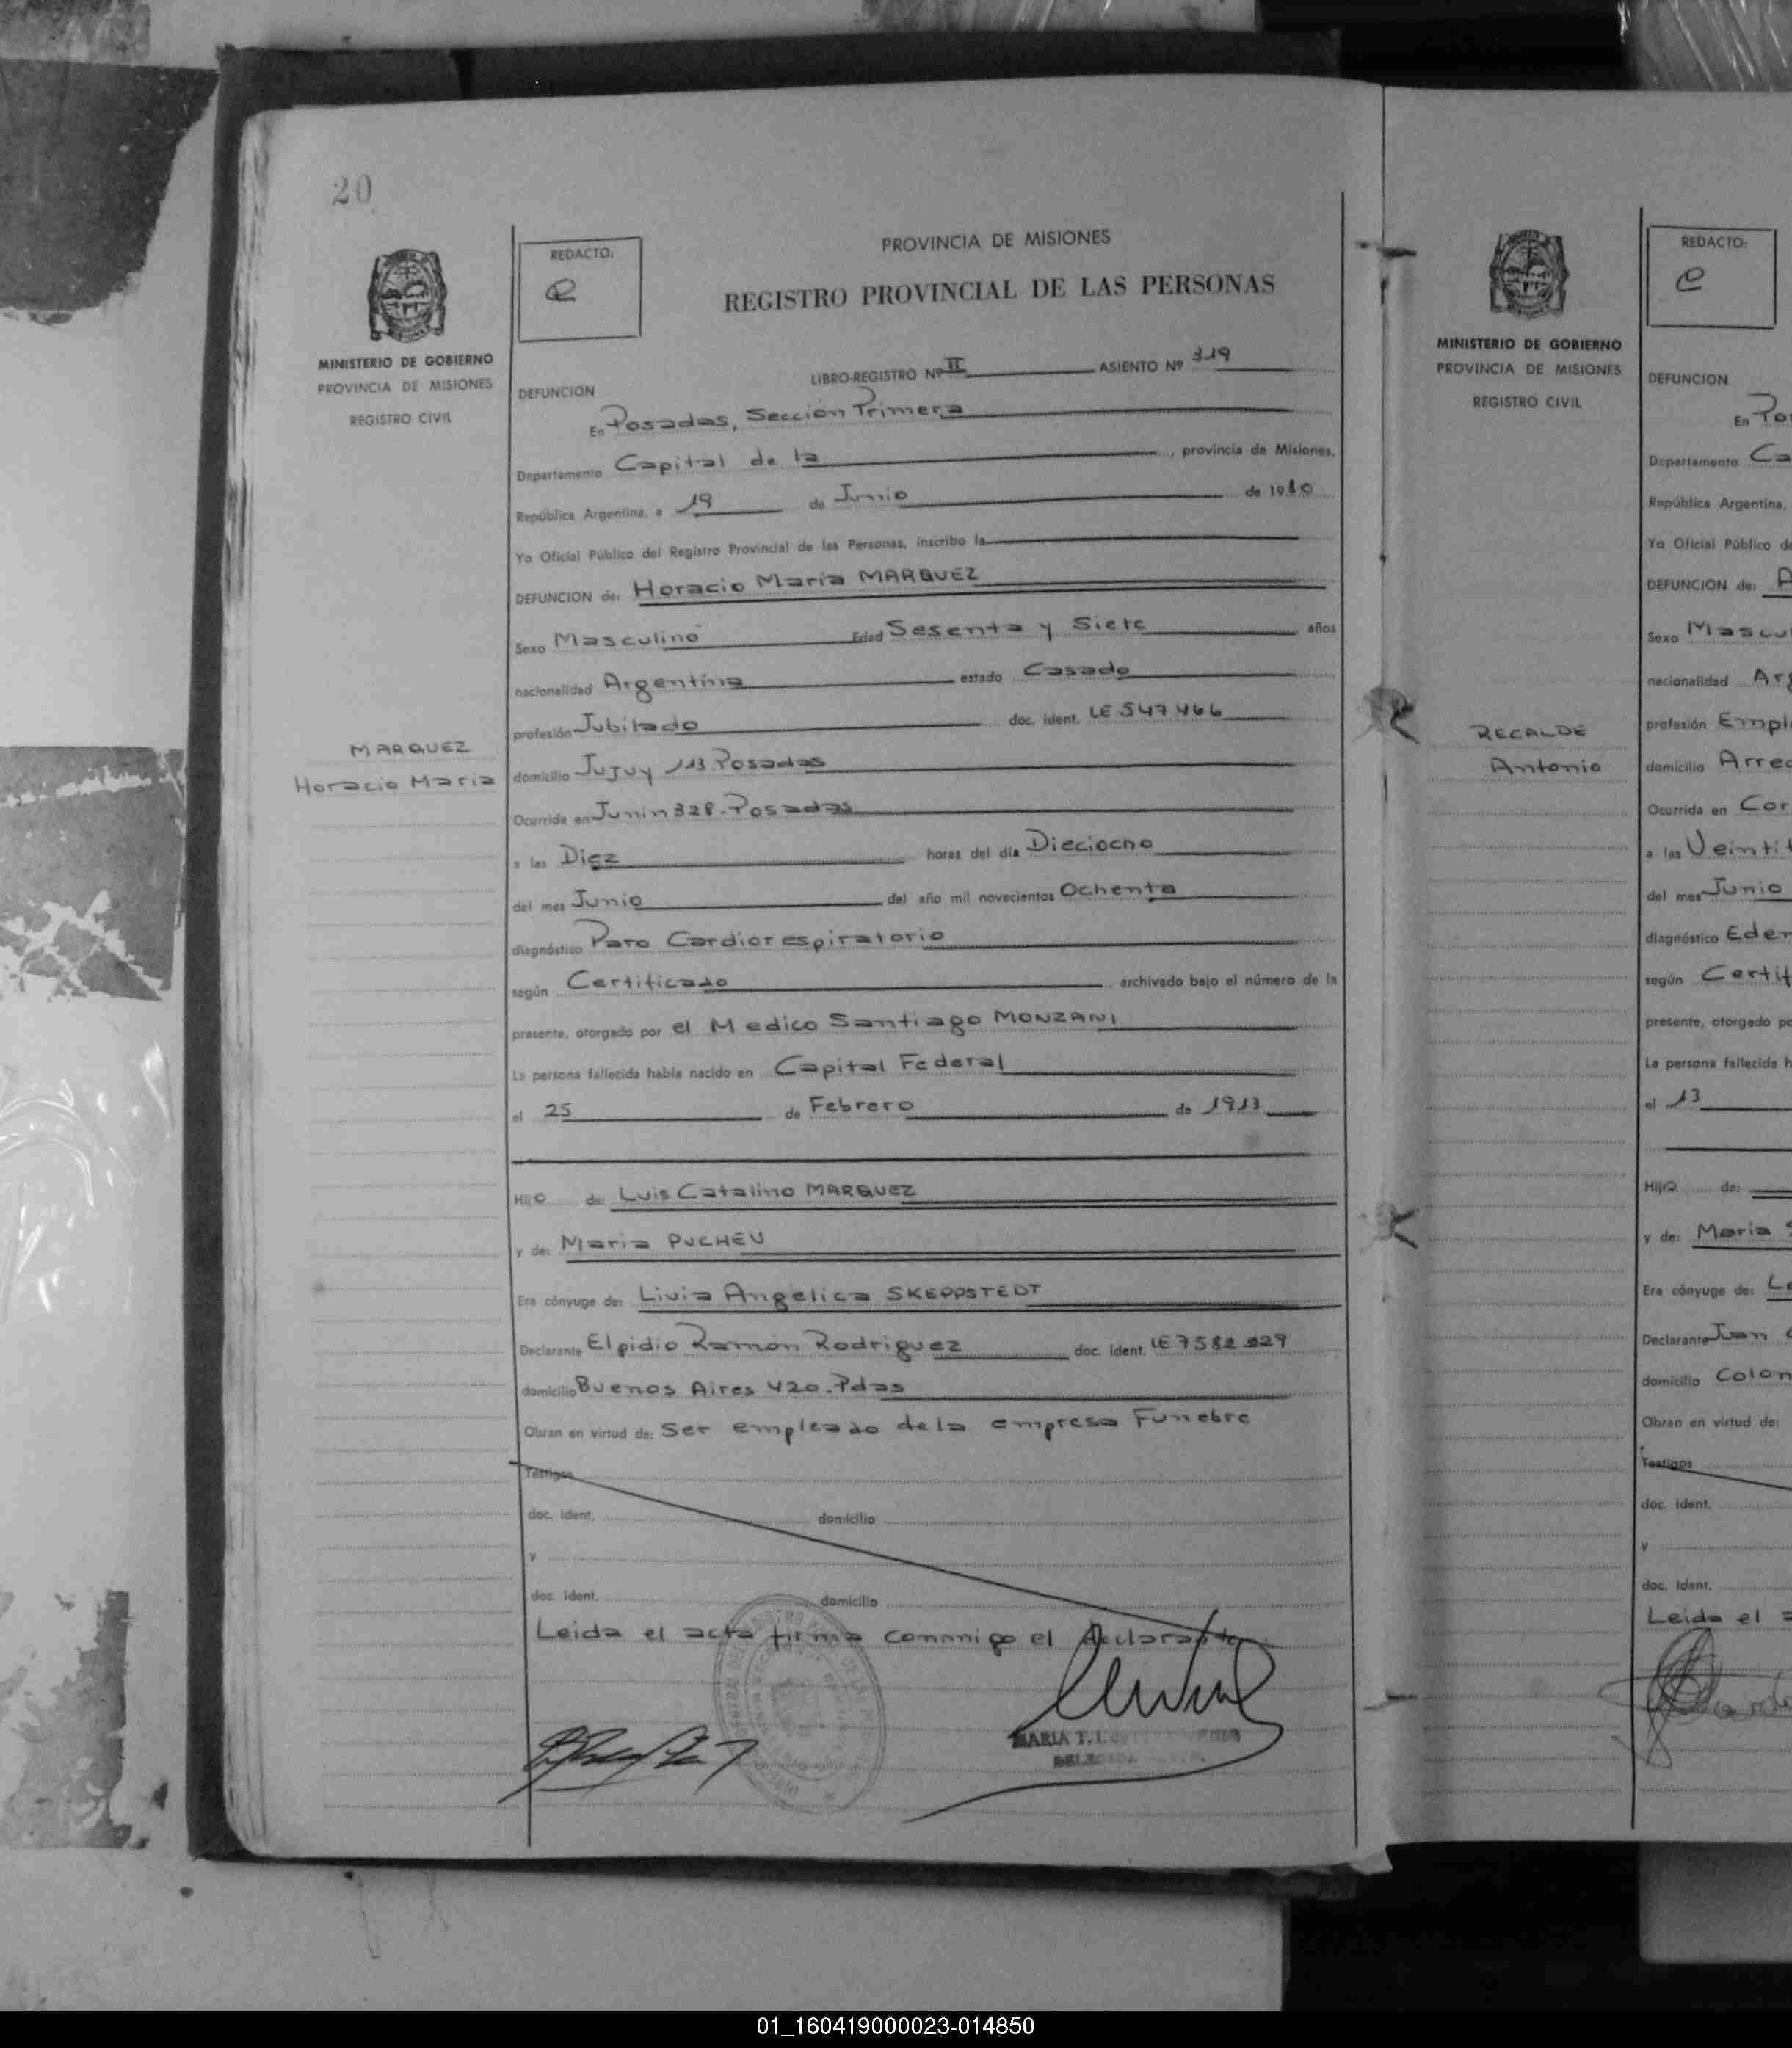 20
MINISTERIO DE GOBIERNO
PROVINCIA DE MISIONES
REGISTRO CIVIL
MARQUEZ
Horacio Maria
REDACTO:
PROVINCIA DE MISIONES
REGISTRO PROVINCIAL DE LAS PERSONAS
LIBRO-REGISTRO Nº II ASIENTO Nº 319
DEFUNCION
En Posadas, Sección Primera
Departamento Capital de la, provincia de Misiones,
República Argentina, a 19 de Junio de 1980
Yo Oficial Público del Registro Provincial de las Personas, inscribo la
DEFUNCION de: Horacio Maria MARQUEZ
Sexo Masculino Edad Sesenta y Siete años
nacionalidad Argentina estado Casado
profesión Jubilado doc. ident. LE 547466
domicilio Jujuy 113. Posadas
Ocurrida en Junin 328.-Posadas
a las Diez horas del día Dieciocho
del mes Junio del año mil novecientos Ochenta
diagnóstico Paro Cardiorespiratorio
según Certificado archivado bajo el número de la
presente, otorgado por el Medico Santiago MONZANI
La persona fallecida había nacido en Capital Federal
el 25 de Febrero de 1913
Hijo de: Luis Catalino MARQUEZ
y de: Maria PUCHEU
Era cónyuge de: Livia Angelica SKEPPSTEDT
Declarante Elpidio Ramón Rodriguez doc. ident. LE 7582 229
domicilio Buenos Aires 420.-Pdas
Obran en virtud de: Ser empleado de la empresa Funebre
Testigos
doc. ident. domicilio
y
doc. ident. domicilio
Leida el acta firma conmigo el declarante
MARIA T.
DELEGADA
MINISTERIO DE GOBIERNO
PROVINCIA DE MISIONES
REGISTRO CIVIL
RECALDE
Antonio
REDACTO:
DEFUNCION
En Pos
Departamento Ca
República Argentina,
Yo Oficial Público de
DEFUNCION de: A
Sexo Mascul
nacionalidad Arg
profesión Empl
domicilio Arre
Ocurrida en Cor
a las Veinti
del mes Junio
diagnóstico Edem
según Certif
presente, otorgado po
La persona fallecida h
el 13
Hijo de:
y de: Maria
Era cónyuge de: Le
Declarante Juan
domicilio Colon
Obran en virtud de:
Testigos
doc. ident.
y
doc. ident.
Leida el a
01_160419000023-014850